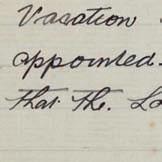 Vacation
appointed.
that the. La